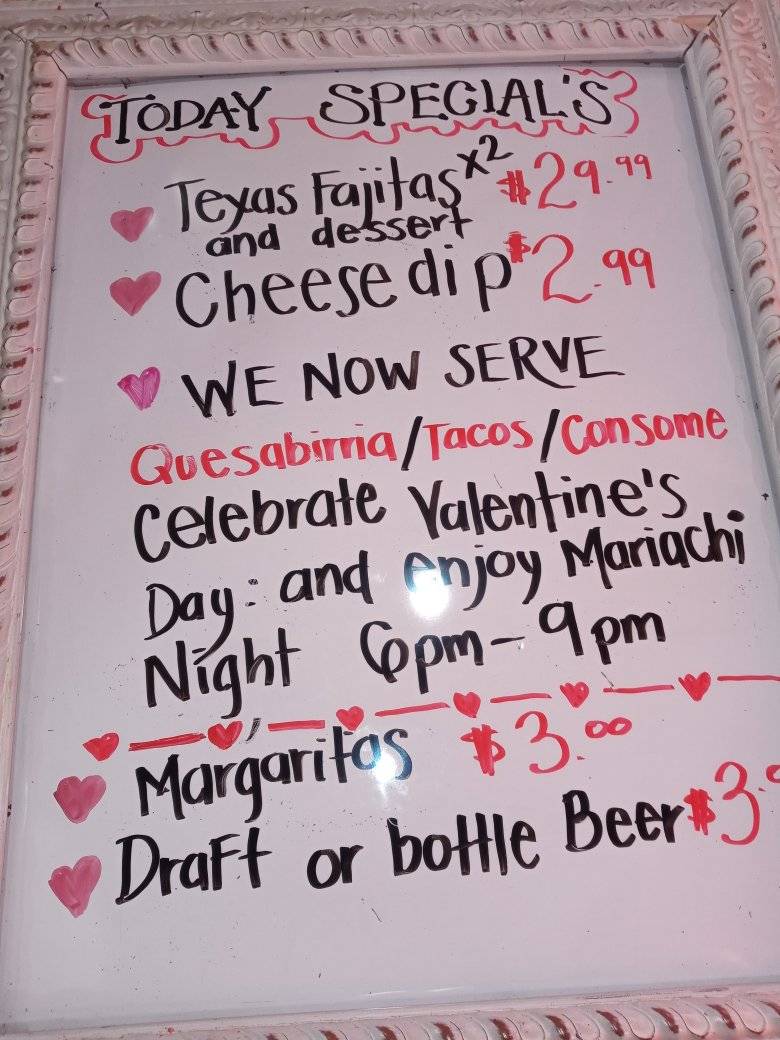 TODAY SPECIAL'S
Texas Fajitas x2 $29.99
and dessert
Cheese dip $2.99
WE NOW SERVE
Quesabirria/Tacos/Consome
Celebrate Valentine's
Day: and enjoy Mariachi
Night 6pm-9pm
Margaritas $3.00
Draft or bottle Beer $3.